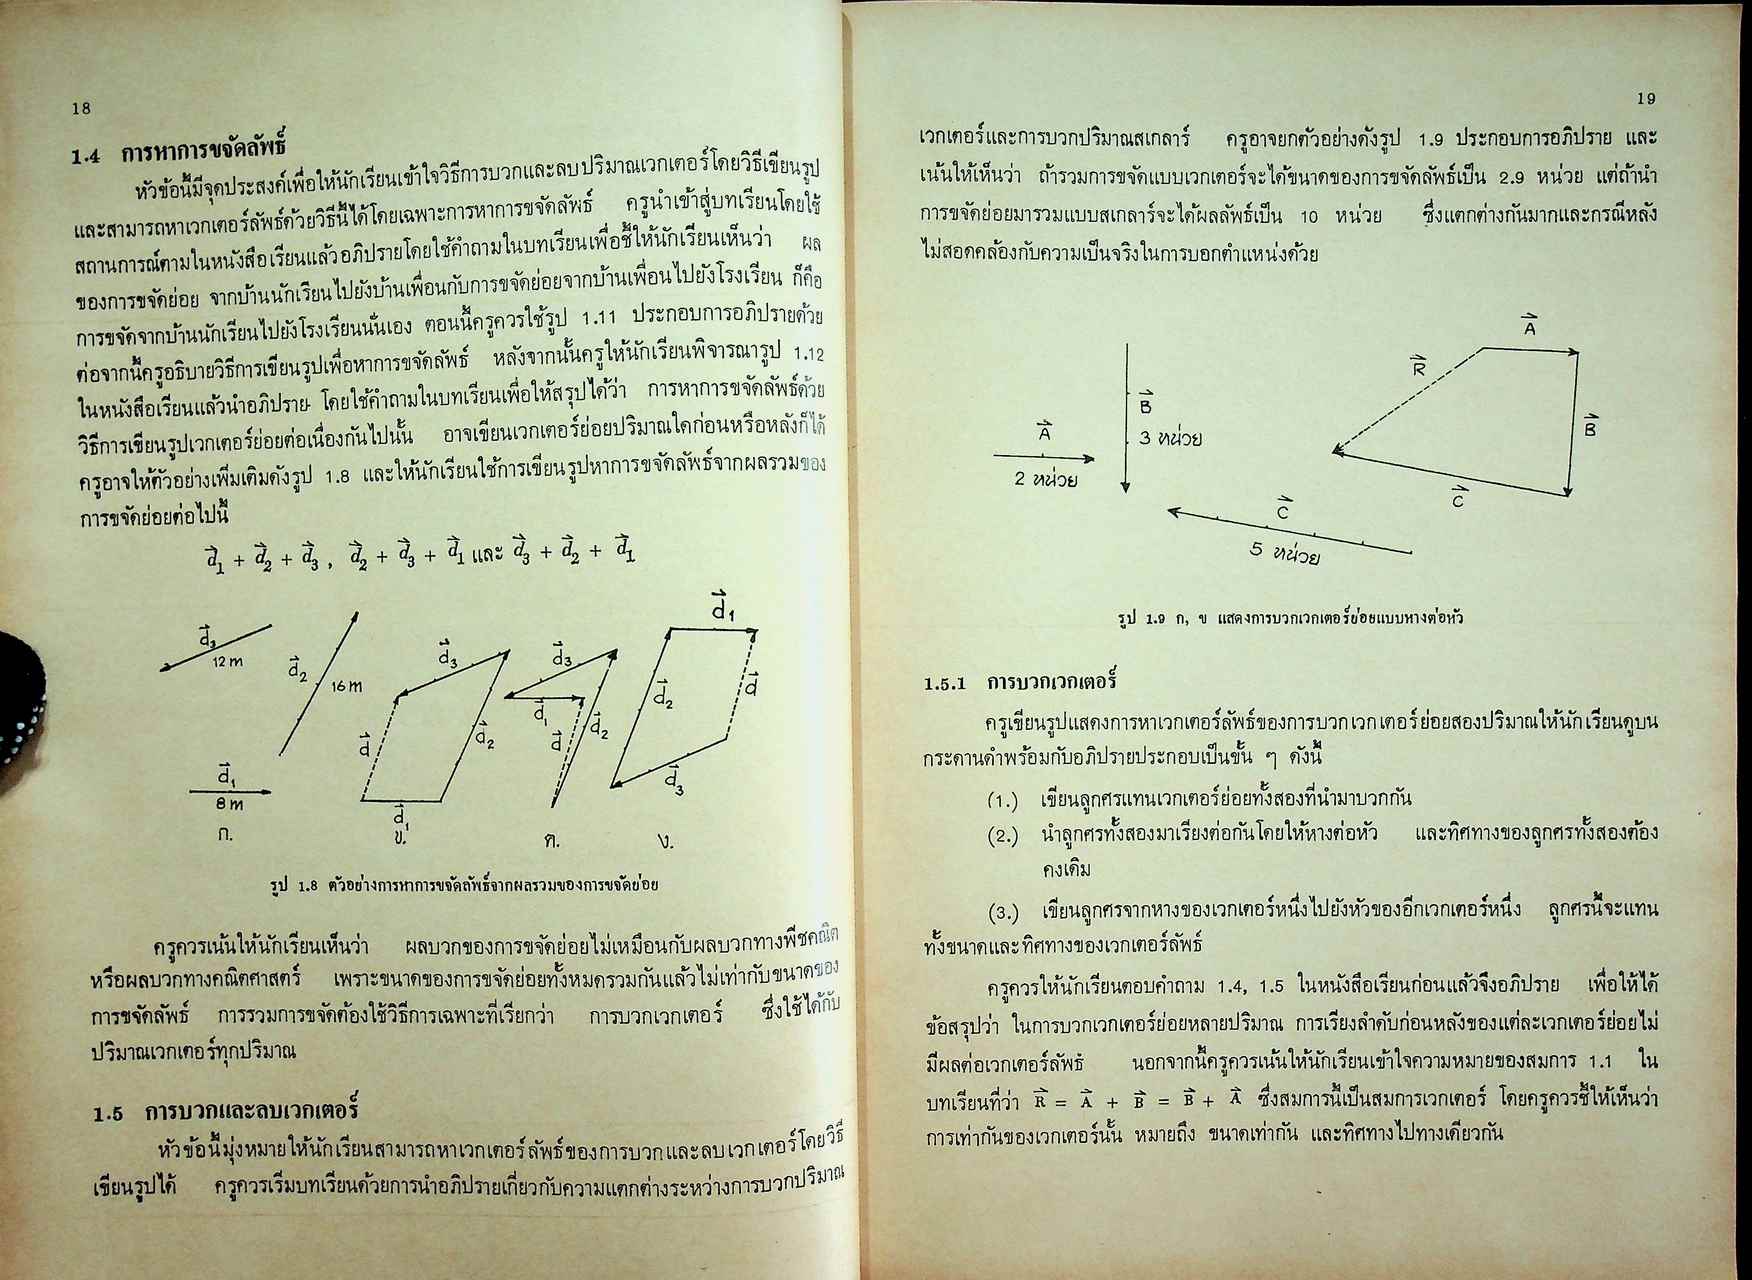 18
1.4 การหาการขจัดลัพธ์
หัวข้อนี้มีจุดประสงค์เพื่อให้นักเรียนเข้าใจวิธีการบวกและลบปริมาณเวกเตอร์โดยวิธีเขียนรูป
และสามารถหาเวกเตอร์ลัพธ์ด้วยวิธีนี้ได้โดยเฉพาะการหาการขจัดลัพธ์ ครูนำเข้าสู่บทเรียนโดยใช้
สถานการณ์ตามในหนังสือเรียนแล้วอภิปรายโดยใช้คำถามในบทเรียนเพื่อชี้ให้นักเรียนเห็นว่า ผล
ของการขจัดย่อย จากบ้านนักเรียนไปยังบ้านเพื่อนกับการขจัดย่อยจากบ้านเพื่อนไปยังโรงเรียน ก็คือ
การขจัดจากบ้านนักเรียนไปยังโรงเรียนนั่นเอง ตอนนี้ครูควรใช้รูป 1.11 ประกอบการอภิปรายด้วย
ต่อจากนี้ครูอธิบายวิธีการเขียนรูปเพื่อหาการขจัดลัพธ์ หลังจากนั้นครูให้นักเรียนพิจารณารูป 1.12
ในหนังสือเรียนแล้วนำอภิปราย โดยใช้คำถามในบทเรียนเพื่อให้สรุปได้ว่า การหาการขจัดลัพธ์ด้วย
วิธีการเขียนรูปเวกเตอร์ย่อยต่อเนื่องกันไปนั้น อาจเขียนเวกเตอร์ย่อยปริมาณใดก่อนหรือหลังก็ได้
ครูอาจให้ตัวอย่างเพิ่มเติมดังรูป 1.8 และให้นักเรียนใช้การเขียนรูปหาการขจัดลัพธ์จากผลรวมของ
การขจัดย่อยต่อไปนี้
d⃗₁ + d⃗₂ + d⃗₃ , d⃗₂ + d⃗₃ + d⃗₁ และ d⃗₃ + d⃗₂ + d⃗₁
d⃗₃
12 m
d⃗₂
16 m
d⃗₁
8 m
ก.
d⃗₃
d⃗
d⃗₂
d⃗₁
ข.
d⃗₃
d⃗₁
d⃗
d⃗₂
ค.
d⃗₁
d⃗₂
d⃗
d⃗₃
ง.
รูป 1.8 ตัวอย่างการหาการขจัดลัพธ์จากผลรวมของการขจัดย่อย
ครูควรเน้นให้นักเรียนเห็นว่า ผลบวกของการขจัดย่อยไม่เหมือนกับผลบวกทางพีชคณิต
หรือผลบวกทางคณิตศาสตร์ เพราะขนาดของการขจัดย่อยทั้งหมดรวมกันแล้วไม่เท่ากับขนาดของ
การขจัดลัพธ์ การรวมการขจัดต้องใช้วิธีการเฉพาะที่เรียกว่า การบวกเวกเตอร์ ซึ่งใช้ได้กับ
ปริมาณเวกเตอร์ทุกปริมาณ
1.5 การบวกและลบเวกเตอร์
หัวข้อนี้มุ่งหมายให้นักเรียนสามารถหาเวกเตอร์ลัพธ์ของการบวกและลบเวกเตอร์โดยวิธี
เขียนรูปได้ ครูควรเริ่มบทเรียนด้วยการนำอภิปรายเกี่ยวกับความแตกต่างระหว่างการบวกปริมาณ
19
เวกเตอร์และการบวกปริมาณสเกลาร์ ครูอาจยกตัวอย่างดังรูป 1.9 ประกอบการอภิปราย และ
เน้นให้เห็นว่า ถ้ารวมการขจัดแบบเวกเตอร์จะได้ขนาดของการขจัดลัพธ์เป็น 2.9 หน่วย แต่ถ้านำ
การขจัดย่อยมารวมแบบสเกลาร์จะได้ผลลัพธ์เป็น 10 หน่วย ซึ่งแตกต่างกันมากและกรณีหลัง
ไม่สอดคล้องกับความเป็นจริงในการบอกตำแหน่งด้วย
A⃗
2 หน่วย
B⃗
3 หน่วย
C⃗
5 หน่วย
A⃗
R⃗
B⃗
C⃗
รูป 1.9 ก, ข แสดงการบวกเวกเตอร์ย่อยแบบหางต่อหัว
1.5.1 การบวกเวกเตอร์
ครูเขียนรูปแสดงการหาเวกเตอร์ลัพธ์ของการบวกเวกเตอร์ย่อยสองปริมาณให้นักเรียนดูบน
กระดานดำพร้อมกับอภิปรายประกอบเป็นขั้น ๆ ดังนี้
(1.) เขียนลูกศรแทนเวกเตอร์ย่อยทั้งสองที่นำมาบวกกัน
(2.) นำลูกศรทั้งสองมาเรียงต่อกันโดยให้หางต่อหัว และทิศทางของลูกศรทั้งสองต้อง
คงเดิม
(3.) เขียนลูกศรจากหางของเวกเตอร์หนึ่งไปยังหัวของอีกเวกเตอร์หนึ่ง ลูกศรนี้จะแทน
ทั้งขนาดและทิศทางของเวกเตอร์ลัพธ์
ครูควรให้นักเรียนตอบคำถาม 1.4, 1.5 ในหนังสือเรียนก่อนแล้วจึงอภิปราย เพื่อให้ได้
ข้อสรุปว่า ในการบวกเวกเตอร์ย่อยหลายปริมาณ การเรียงลำดับก่อนหลังของแต่ละเวกเตอร์ย่อยไม่
มีผลต่อเวกเตอร์ลัพธ์ นอกจากนี้ครูควรเน้นให้นักเรียนเข้าใจความหมายของสมการ 1.1 ใน
บทเรียนที่ว่า R⃗ = A⃗ + B⃗ = B⃗ + A⃗ ซึ่งสมการนี้เป็นสมการเวกเตอร์ โดยครูควรชี้ให้เห็นว่า
การเท่ากันของเวกเตอร์นั้น หมายถึง ขนาดเท่ากัน และทิศทางไปทางเดียวกัน